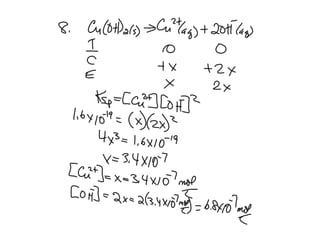 8. Cu(OH)₂(s) → Cu²⁺(aq) + 2OH⁻(aq)
I 0 0
C +x +2x
E x 2x
Ksp = [Cu²⁺][OH⁻]²
1.6x10⁻¹⁹ = (x)(2x)²
4x³ = 1.6x10⁻¹⁹
x = 3.4x10⁻⁷
[Cu²⁺] = x = 3.4x10⁻⁷ mol/L
[OH⁻] = 2x = 2(3.4x10⁻⁷ mol/L) = 6.8x10⁻⁷ mol/L